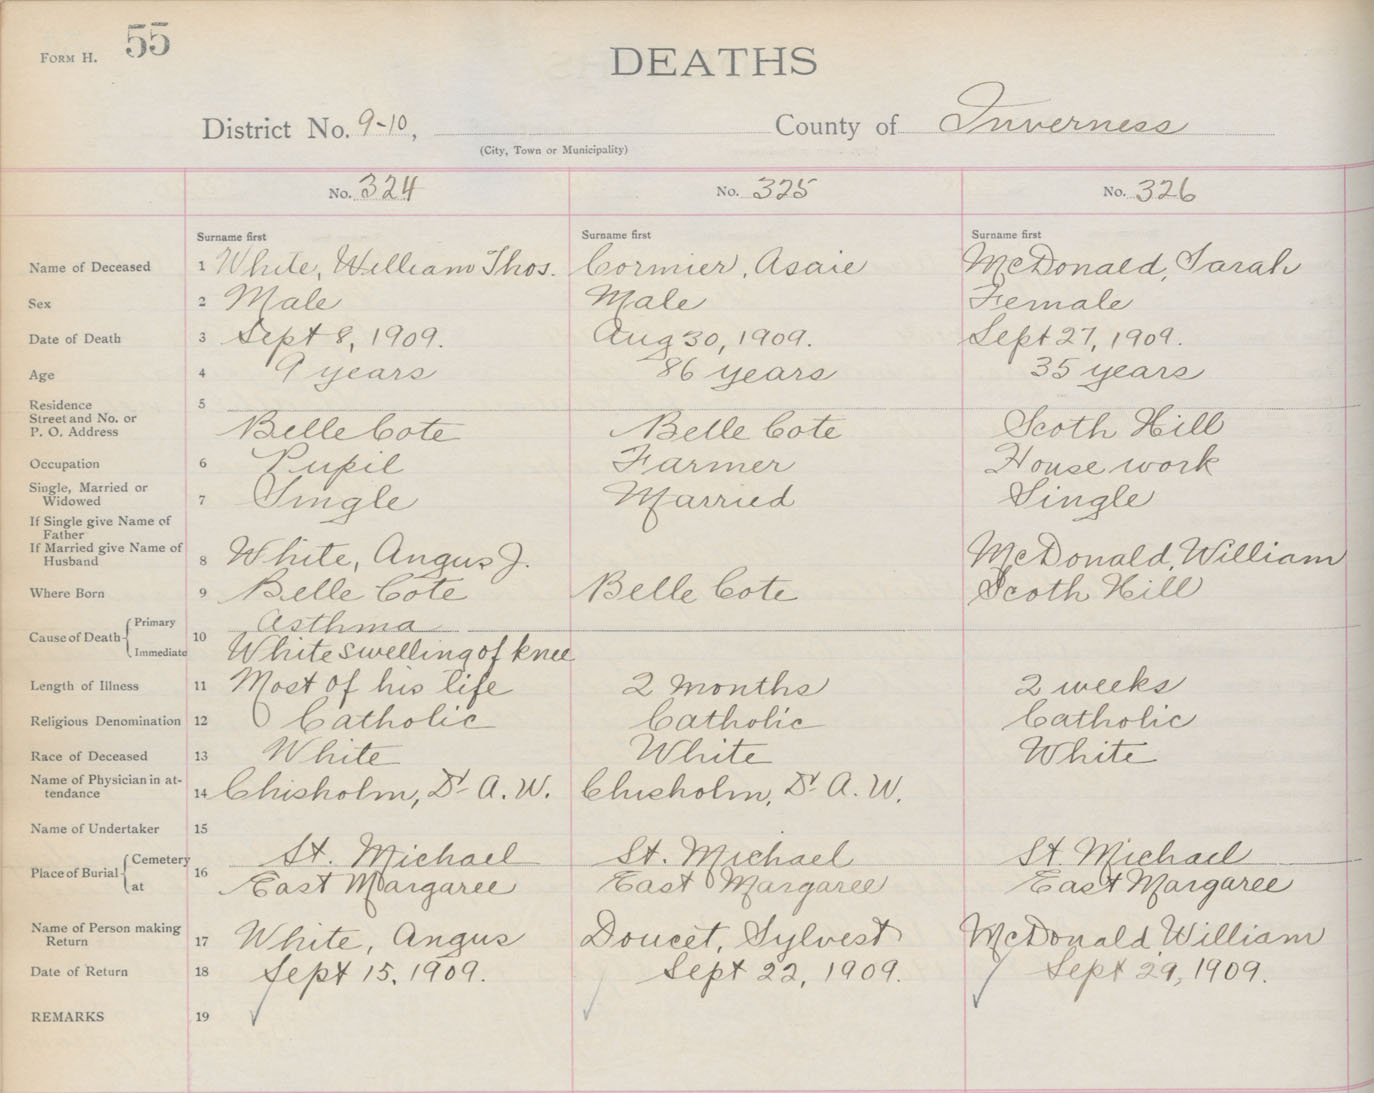 FORM H. 55
DEATHS
District No. 9-10, County of Inverness
(City, Town or Municipality)
No. 324 No. 325 No. 326
Surname first Surname first Surname first
Name of Deceased 1 White, William Thos. Cormier, Asaie McDonald, Sarah
Sex 2 Male Male Female
Date of Death 3 Sept 8, 1909. Aug 30, 1909. Sept 27, 1909.
Age 4 9 years 86 years 35 years
Residence 5
Street and No. or
P. O. Address Belle Cote Belle Cote Scoth Hill
Occupation 6 Pupil Farmer House work
Single, Married or
Widowed 7 Single Married Single
If Single give Name of
Father
If Married give Name of
Husband 8 White, Angus J. McDonald, William
Where Born 9 Belle Cote Belle Cote Scoth Hill
Cause of Death Primary Asthma
10
Immediate White swelling of knee
Length of Illness 11 Most of his life 2 months 2 weeks
Religious Denomination 12 Catholic Catholic Catholic
Race of Deceased 13 White White White
Name of Physician in at-
tendance 14 Chisholm, Dr A. W. Chisholm, Dr A. W.
Name of Undertaker 15
Place of Burial Cemetery St. Michael St. Michael St. Michael
16
at East Margaree East Margaree East Margaree
Name of Person making
Return 17 White, Angus Doucet, Sylvest McDonald William
Date of Return 18 Sept 15, 1909. Sept 22, 1909. Sept 29, 1909.
REMARKS 19